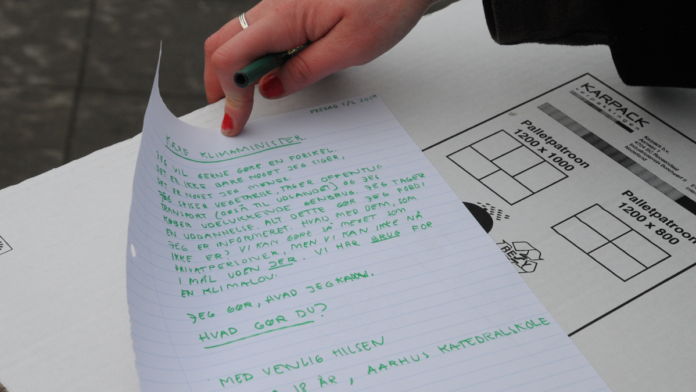 FREDAG
KÆRE KLIMAMINISTER.
JEG VIL GERNE GØRE EN FORSKEL.
DET ER IKKE BARE NOGET JEG SIGER,
DET ER NOGET JEG MENER!
JEG SPISER VEGETARISK, TAGER OFFENTLIG
TRANSPORT (OGSÅ TIL UDLANDET) OG JEG
KØBER UDELUKKENDE GENBRUG. JEG TAGER
EN UDDANNELSE. ALT DETTE GØR JEG FORDI
JEG ER INFORMERET. HVAD MED DEM, DER
IKKE ER? VI KAN GØRE SÅ MEGET SOM
PRIVATPERSONER, MEN VI KAN IKKE NÅ
I MÅL UDEN JER. VI HAR BRUG FOR
EN KLIMALOV.
JEG GØR, HVAD JEG KAN.
HVAD GØR DU?
MED VENLIG HILSEN
18 ÅR, AARHUS KATEDRALSKOLE
KARPACK
Palletpatroon
1200 x 1000
Palletpatroon
1200 x 800